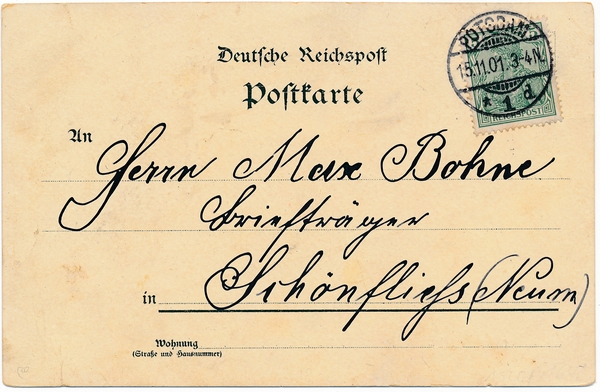 POTSDAM 1
15.11.01. 3-4N.
* 1 d
REICHSPOST
Deutsche Reichspost
Postkarte
An
Herrn Max Bohne
Briefträger
in Schönfliess (Neum)
Wohnung
(Straße und Hausnummer)